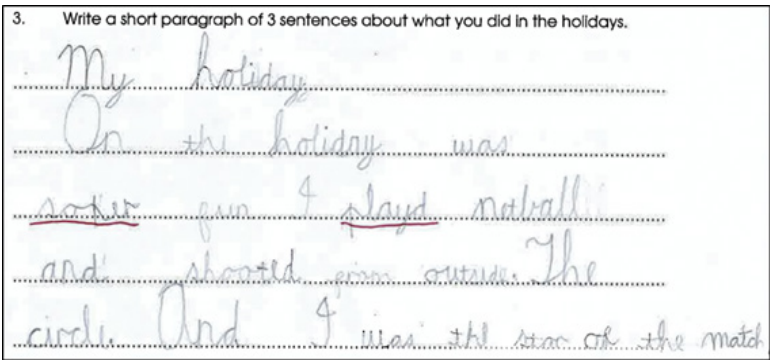 3. Write a short paragraph of 3 sentences about what you did in the holidays.
My holiday
On the holiday was
soker fun I playd netball
and shooted from outside. The
circle. And I was the star of the match